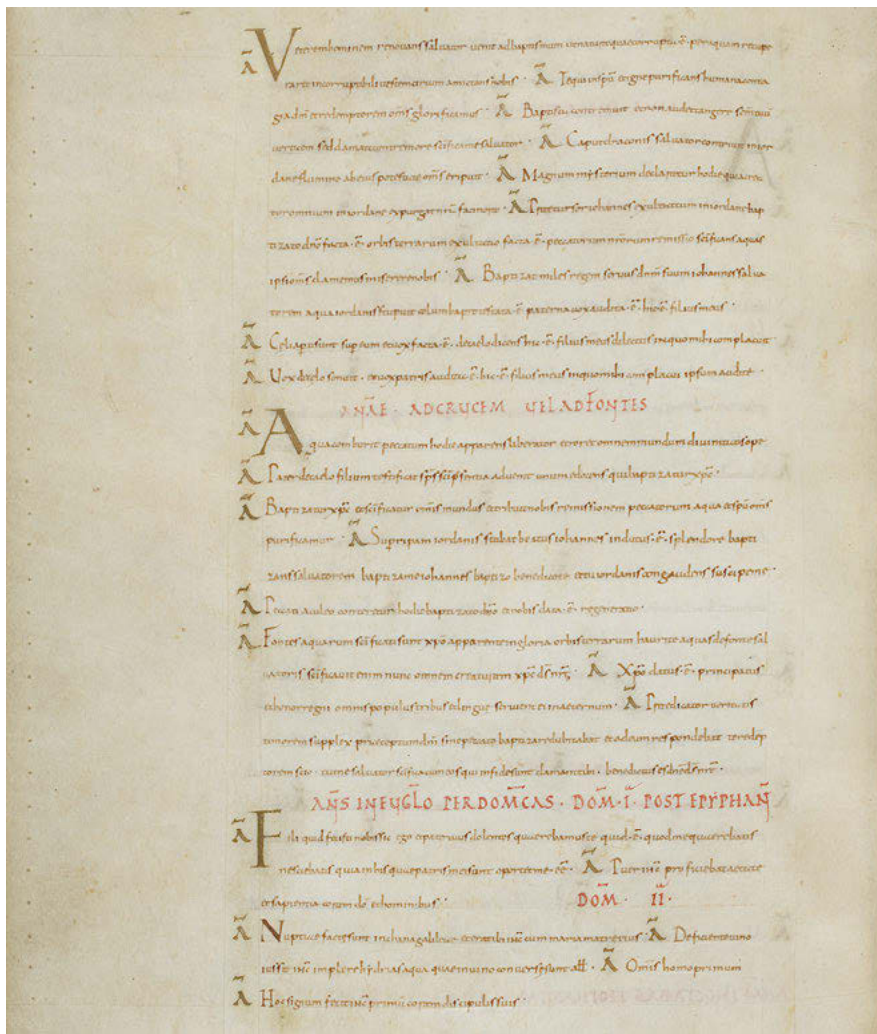 Ā Veterem hominem renovans salvator venit ad baptismum ut naturam quae corrupta ē per aquam recupe
raret incorruptibili veste circum amictans nobis · Ā Te qui in spū et igne purificans humana conta
gia dm̄ et redemptorem om̄s glorificamus · Ā Baptista contremuit et non audet tangere sc̄m tui
verticem sed clamat cum tremore sc̄ifica me salvator · Ā Caput draconis salvator contrivit in ior
dane flumine ab eius potestate om̄s eripuit · Ā Magnum mysterium declaratur hodie quia crea
tor omnium in iordane expurgat nr̄a facinora · Ā Praecursor iohannes exultat cum in iordane bap
tizato dn̄o facta · ē · orbis terrarum exultatio facta · ē · peccatorum nr̄orum remissio sc̄ificans aquas
ipsi om̄s clamemus miserere nobis · Ā Baptizat miles regem servus dn̄m suum iohannes salva
torem aqua iordanis stupuit columba protestata · ē · paterna vox audita · ē · hic · ē · filius meus ·
Ā Celi aperti sunt super eum et vox facta · ē · de caelo dicens hic · ē · filius meus dilectus in quo mihi complacuit
Ā Vox de celo sonuit · et vox patris audita · ē · hic · ē · filius meus in quo mihi complacui ipsum audite ·
ANAE · AD CRUCEM VEL AD FONTES
Ā Aqua comburit peccatum hodie apparens liberator et rorat omnem mundum divinitatis ope
Ā Pater de celo filium testificat sp̄s sc̄i praesentia advenit unum edocens qui baptizatur xp̄e ·
Ā Baptizatur xp̄c et sc̄ificatur om̄is mundus et tribuit nobis remissionem peccatorum aqua et spū om̄s
purificamur · Ā Super ripam iordanis stabat beatus iohannes indutus · ē · splendore bapti
zans salvatorem baptiza me iohannes baptizo benedico te et tu iordanis congaudens suscipe me ·
Ā Peccati aculeus conteretur hodie baptizato dn̄o et nobis data · ē · regeneratio ·
Ā Fontes aquarum sc̄ificati sunt xp̄o apparente in gloria orbis terrarum haurite aquas de fonte sal
vatoris sc̄ificavit enim nunc omnem creaturam xp̄c ds̄ nr̄ · Ā Xp̄o datus · ē · principatus
et honor regni omnis populus tribus et linguae servient ei in aeternum · Ā Praedicator veritatis
timorem supplex praeceptum dn̄i sine peccato baptizare dubitabat et ad eum respondebat
torem scito · tunc salvator sc̄ificavit eos qui in fide sunt clamant tibi · benedictus es dn̄e ds̄ nr̄ ·
AÑS IN EVGLO PER DOM̄CAS · DOM̄ · I · POST EPYPHAN̄
Ā Fili quid fecisti nobis sic ego et pater tuus dolentes quaerebamus te quid · ē · quod me quaerebatis
nesciebatis quia in his quae patris mei sunt oportet me · eē · Ā Puer ih̄c proficiebat aetate
et sapientia coram do et hominibus ·
DOM̄ · II ·
Ā Nuptiae factae sunt in chana galileae et erat ibi ih̄c cum maria matre eius · Ā Deficiente vino
iussit ih̄c impleri hydrias aqua quae in vino conversae sunt all̄ · Ā Om̄is homo primum
Ā Hoc signum fecit ih̄c primū coram discipulis suis ·